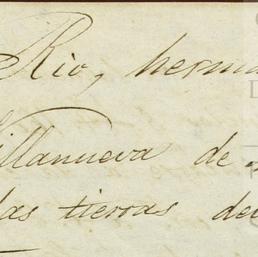 Rio, herma
Villanueva de
las tierras del